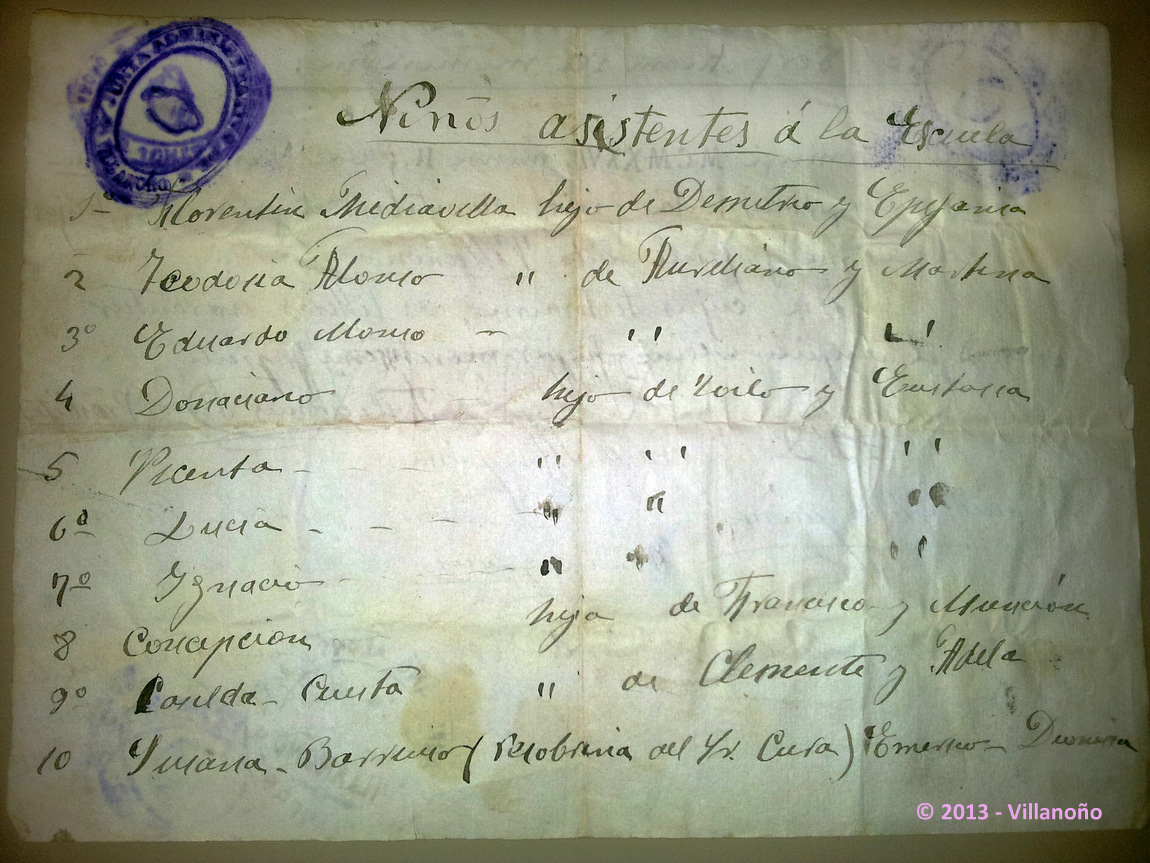 JUNTA ADMINISTRATIVA
Niños asistentes á la Escuela
1º Florentin Mediavilla hijo de Demetrio y Epifania
2 Teodosia Alonso " de Aureliano y Martina
3º Eduardo Alonso - " "
4 Donaciano hijo de Zoilo y Eustasia
5 Vicenta - - - " " "
6ª Lucia - - - " " "
7º Ignacio - " " "
8 Concepción hija de Francisco y Asunción
9º Casilda - Cuesta " de Clemente y Adela
10 Susana - Barriuso ( sobrina del Sr. Cura ) Emerico - Dionisia
© 2013 - Villanoño